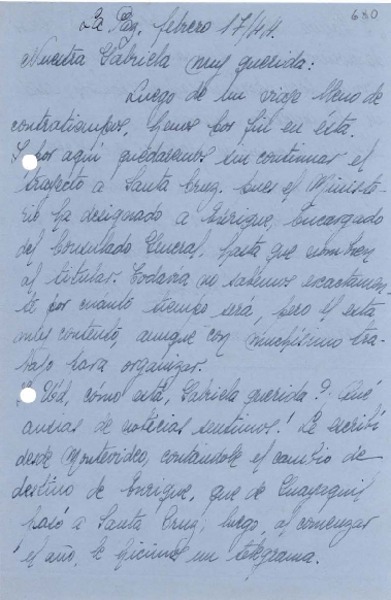 680
La Paz, febrero 17/44.
Nuestra Gabriela muy querida:
Luego de un viaje lleno de
contratiempos, henos por fin en ésta.
Y por aquí quedaremos sin continuar el
trayecto a Santa Cruz. Pues el Ministe-
rio ha designado a Enrique, Encargado
del Consulado General, hasta que nombren
al titular. Todavía no sabemos exactamen-
te por cuanto tiempo será, pero él está
muy contento, aunque con muchísimo tra-
bajo para organizar.
Y Ud, cómo está, Gabriela querida? Qué
ansias de noticias sentimos! Le escribí
desde Montevideo, contándole el cambio de
destino de Enrique, que de Guayaquil
pasó a Santa Cruz; luego, al comenzar
el año, le hicimos un telegrama.